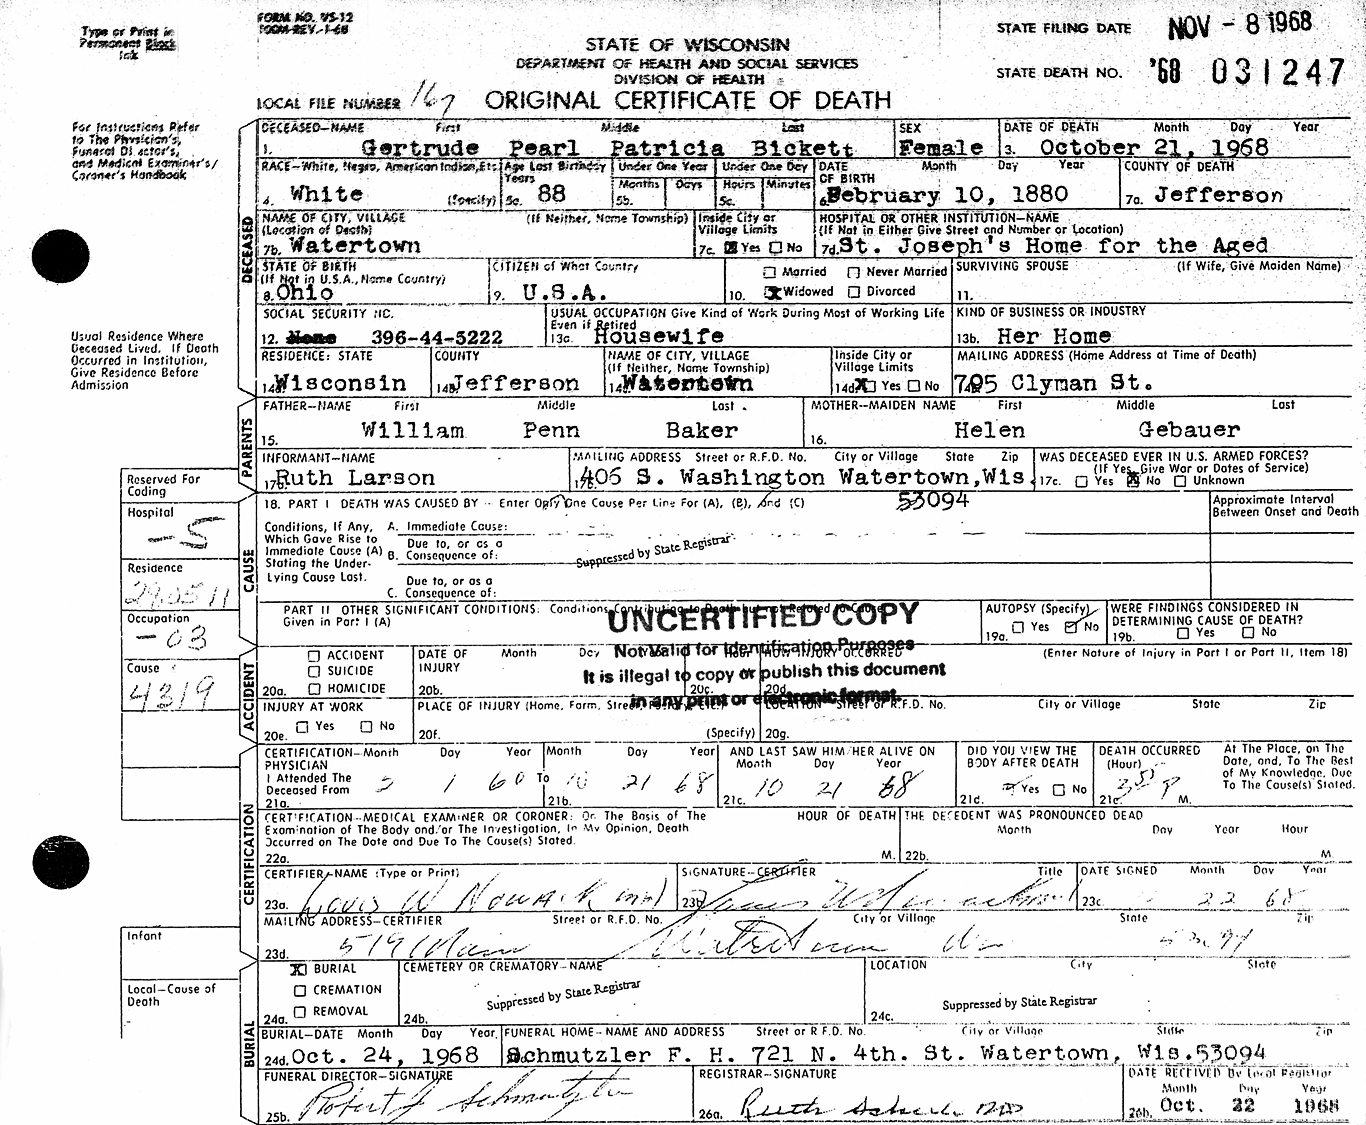 Type or Print in
Permanent Black
Ink
FORM NO. VS-12
FORM REV. 1-68
STATE OF WISCONSIN
DEPARTMENT OF HEALTH AND SOCIAL SERVICES
DIVISION OF HEALTH
STATE FILING DATE NOV - 8 1968
STATE DEATH NO. '68 031247
LOCAL FILE NUMBER 167
ORIGINAL CERTIFICATE OF DEATH
For Instructions Refer
to The Physician's,
Funeral Director's,
and Medical Examiner's/
Coroner's Handbook
DECEASED
DECEASED—NAME First Middle Last SEX DATE OF DEATH Month Day Year
1. Gertrude Pearl Patricia Bickett Female 3. October 21, 1968
RACE—White, Negro, American Indian, Etc. Age Last Birthday Under One Year Under One Day DATE OF BIRTH Month Day Year COUNTY OF DEATH
Years Months Days Hours Minutes
4. White (Specify) 5a. 88 5b. 5c. 6. February 10, 1880 7a. Jefferson
NAME OF CITY, VILLAGE (If Neither, Name Township) Inside City or HOSPITAL OR OTHER INSTITUTION—NAME
(Location of Death) Village Limits (If Not in Either Give Street and Number or Location)
7b. Watertown 7c. Yes No 7d. St. Joseph's Home for the Aged
STATE OF BIRTH CITIZEN of What Country Married Never Married SURVIVING SPOUSE (If Wife, Give Maiden Name)
(If Not in U.S.A., Name Country)
8. Ohio 9. U.S.A. 10. Widowed Divorced 11.
SOCIAL SECURITY NO. USUAL OCCUPATION Give Kind of Work During Most of Working Life KIND OF BUSINESS OR INDUSTRY
Even if Retired
12. None 396-44-5222 13a. Housewife 13b. Her Home
Usual Residence Where
Deceased Lived. If Death
Occurred in Institution,
Give Residence Before
Admission
RESIDENCE: STATE COUNTY NAME OF CITY, VILLAGE Inside City or MAILING ADDRESS (Home Address at Time of Death)
(If Neither, Name Township) Village Limits
14a. Wisconsin 14b. Jefferson 14c. Watertown 14d. Yes No 705 Clyman St.
PARENTS
FATHER—NAME First Middle Last MOTHER—MAIDEN NAME First Middle Last
15. William Penn Baker 16. Helen Gebauer
INFORMANT—NAME MAILING ADDRESS Street or R.F.D. No. City or Village State Zip WAS DECEASED EVER IN U.S. ARMED FORCES?
(If Yes, Give War or Dates of Service)
17a. Ruth Larson 17b. 406 S. Washington Watertown, Wis. 17c. Yes No Unknown
53094
Reserved For
Coding
Hospital
-5
Residence
290511
Occupation
-03
Cause
4319
CAUSE
18. PART I DEATH WAS CAUSED BY - Enter Only One Cause Per Line For (A), (B), and (C) Approximate Interval
Between Onset and Death
Conditions, If Any,
Which Gave Rise to
Immediate Cause (A)
Stating the Under-
Lying Cause Last.
A. Immediate Cause:
B. Due to, or as a
Consequence of:
Suppressed by State Registrar
C. Due to, or as a
Consequence of:
PART II OTHER SIGNIFICANT CONDITIONS: Conditions Contributing to Death but not Related to Cause
Given in Part I (A)
AUTOPSY (Specify) WERE FINDINGS CONSIDERED IN
DETERMINING CAUSE OF DEATH?
19a. Yes No 19b. Yes No
UNCERTIFIED COPY
Not Valid for Identification Purposes
It is illegal to copy or publish this document
in any print or electronic format.
ACCIDENT
ACCIDENT DATE OF Month Day Year HOUR HOW INJURY OCCURRED (Enter Nature of Injury in Part I or Part II, Item 18)
SUICIDE INJURY
20a. HOMICIDE 20b. 20c. 20d.
INJURY AT WORK PLACE OF INJURY (Home, Farm, Street, Factory, Etc.) LOCATION Street or R.F.D. No. City or Village State Zip
20e. Yes No 20f. (Specify) 20g.
CERTIFICATION
CERTIFICATION—Month Day Year Month Day Year AND LAST SAW HIM/HER ALIVE ON DID YOU VIEW THE DEATH OCCURRED At The Place, on The
PHYSICIAN Month Day Year BODY AFTER DEATH (Hour) Date, and, To The Best
I Attended The of My Knowledge, Due
Deceased From To The Cause(s) Stated.
21a. 2 1 60 To 21b. 10 21 68 21c. 10 21 68 21d. Yes No 21e. M.
CERTIFICATION—MEDICAL EXAMINER OR CORONER: On The Basis of The HOUR OF DEATH THE DECEDENT WAS PRONOUNCED DEAD
Examination of The Body and/or The Investigation, In My Opinion, Death Month Day Year Hour
Occurred on The Date and Due To The Cause(s) Stated.
22a. M. 22b. M
CERTIFIER—NAME (Type or Print) SIGNATURE—CERTIFIER Title DATE SIGNED Month Day Year
23a. Louis W Nowack MD 23b. 23c. 22 68
MAILING ADDRESS—CERTIFIER Street or R.F.D. No. City or Village State Zip
23d. 519 Main Watertown
Infant
Local—Cause of
Death
BURIAL
BURIAL CEMETERY OR CREMATORY—NAME LOCATION City State
CREMATION
24a. REMOVAL 24b. Suppressed by State Registrar 24c. Suppressed by State Registrar
BURIAL—DATE Month Day Year FUNERAL HOME—NAME AND ADDRESS Street or R.F.D. No. City or Village State Zip
24d. Oct. 24, 1968 Schmutzler F. H. 721 N. 4th. St. Watertown, Wis. 53094
FUNERAL DIRECTOR—SIGNATURE REGISTRAR—SIGNATURE DATE RECEIVED By Local Registrar
Month Day Year
25b. Robert J Schmutzler 26a. Ruth 26b. Oct. 22 1968